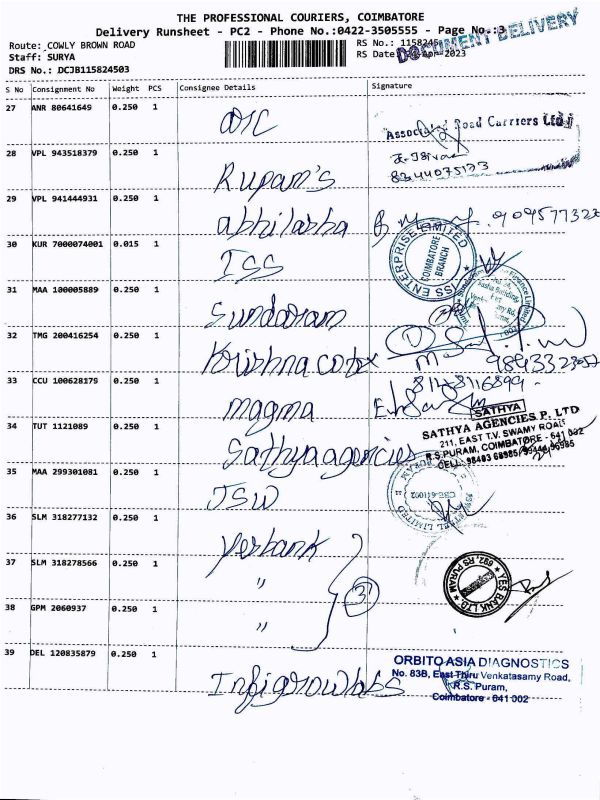 THE PROFESSIONAL COURIERS, COIMBATORE
Delivery Runsheet - PC2 - Phone No.:0422-3505555 - Page No.:3
DOCUMENT DELIVERY
Route: COWLY BROWN ROAD
RS No.: 1158245
Staff: SURYA
RS Date: Apr-2023
DRS No.: DCJB115824503
S No Consignment No Weight PCS Consignee Details Signature
27 ANR 80641649 0.250 1
Associated Road Carriers Ltd
8344075173
28 VPL 943518379 0.250 1 Rupam's
29 VPL 941444931 0.250 1 abhilasha
30 KUR 7000074001 0.015 1 ISS
ISS ENTERPRISE LIMITED
COIMBATORE
BRANCH
31 MAA 100005889 0.250 1 Sundaram
32 TMG 200416254 0.250 1 Krishna
33 CCU 100628179 0.250 1 magma
8148116899
34 TUT 1121089 0.250 1 Sathya agencies
SATHYA
SATHYA AGENCIES P. LTD
211, EAST T.V. SWAMY ROAD
R.S.PURAM, COIMBATORE - 641 002
35 MAA 299301081 0.250 1 JSW
36 SLM 318277132 0.250 1 Yesbank
37 SLM 318278566 0.250 1 "
3
YES BANK LTD
RS PURAM
38 GPM 2060937 0.250 1 "
39 DEL 120835879 0.250 1
ORBITO ASIA DIAGNOSTICS
No. 83B, East Thiru Venkatasamy Road,
R.S. Puram,
Coimbatore - 641 002